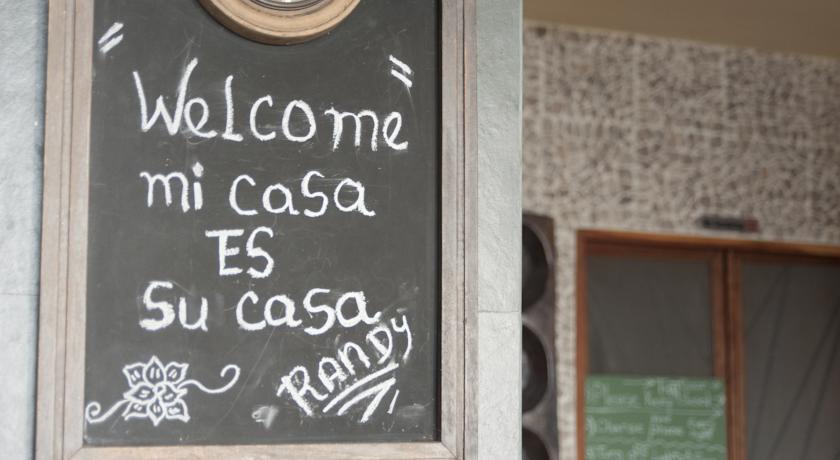 "Welcome"
mi casa
ES
su casa
RANDY